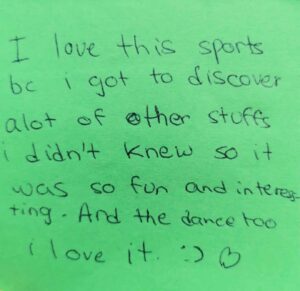 I love this sports
bc i got to discover
alot of other stuffs
i didn't knew so it
was so fun and interes-
ting. And the dance too
i love it. :) ♡